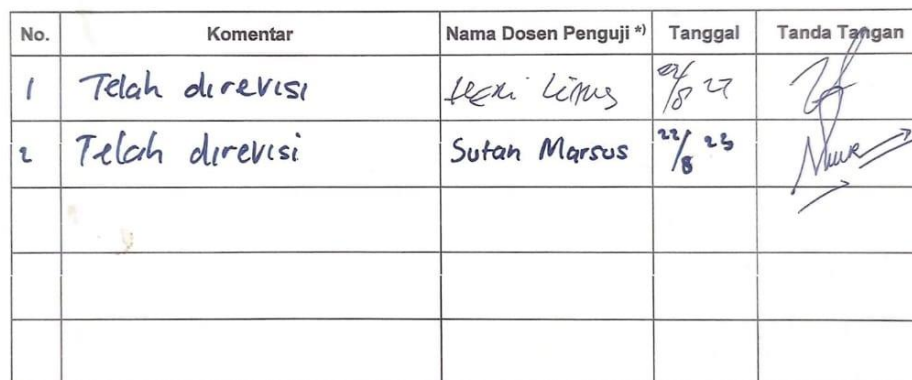 No. Komentar Nama Dosen Penguji *) Tanggal Tanda Tangan
1 Telah direvisi
2 Telah direvisi Sutan Marsus 22/8 23